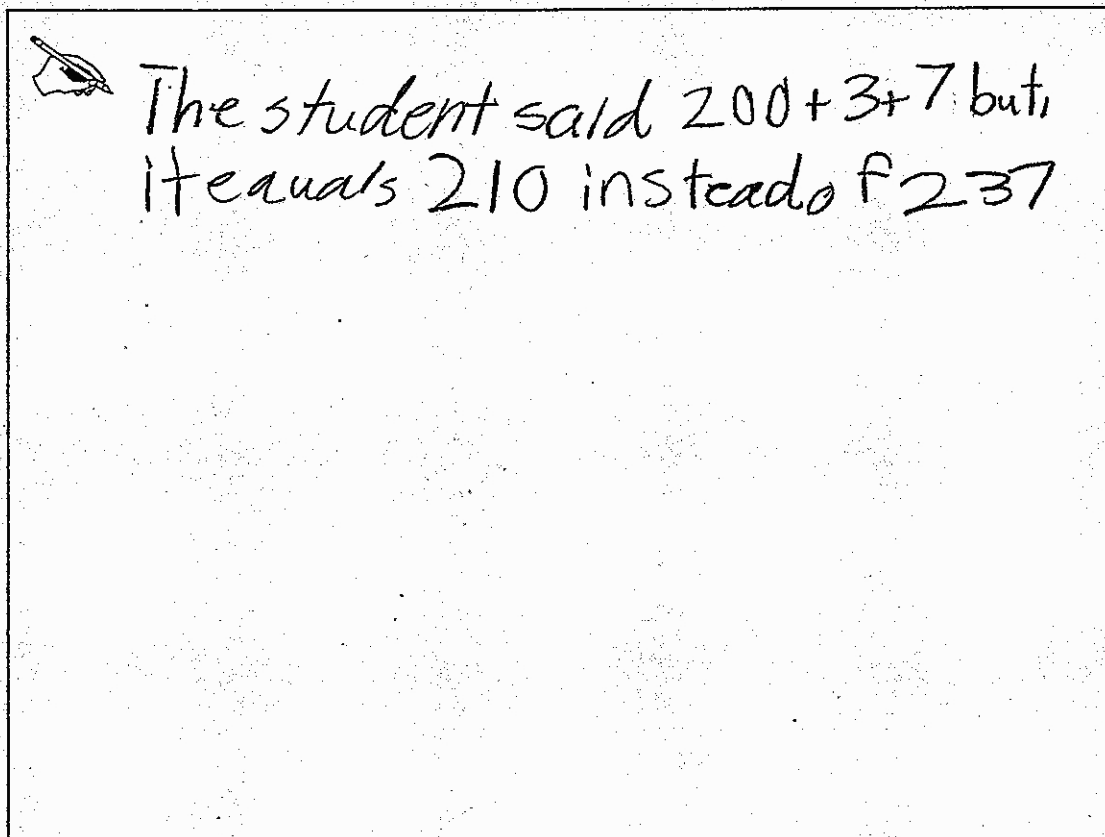 The student said 200+3+7 but,
it equals 210 instead of 237